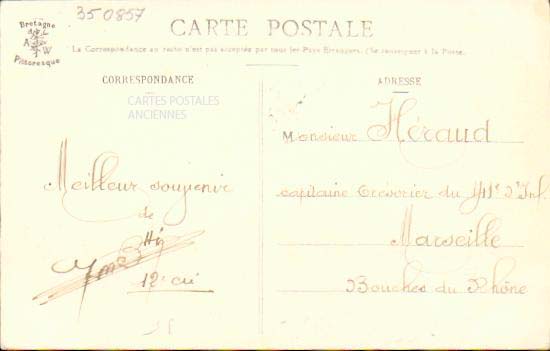 350857
Bretagne
A W
Pittoresque
CARTE POSTALE
La Correspondance au recto n'est pas acceptée par tous les Pays Etrangers. (Se renseigner à la Poste.
CORRESPONDANCE
CARTES POSTALES
ANCIENNES
Meilleur souvenir
de
12e Cie
ADRESSE
Monsieur Héraud
capitaine trésorier du 141e d'Inf.
Marseille
Bouches du Rhône